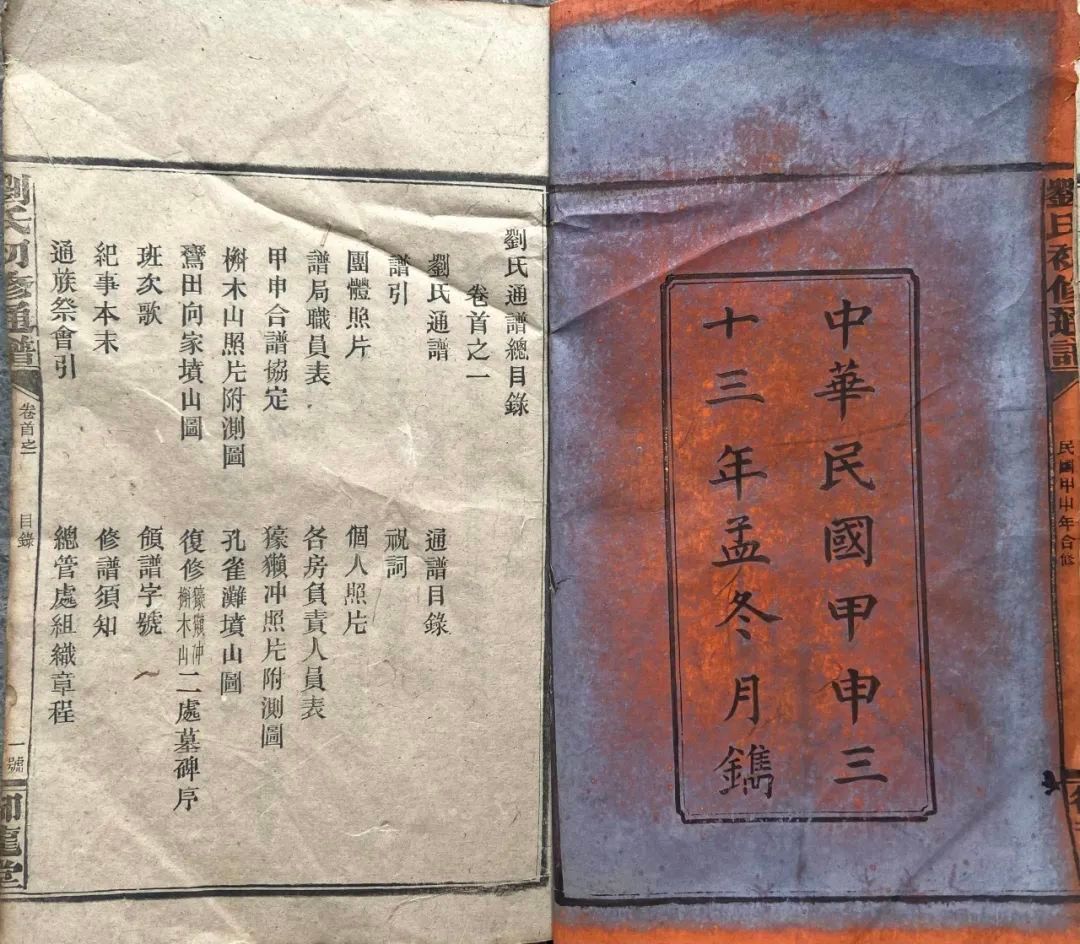 劉氏初修通譜
民國甲申年合修
中華民國甲申三
十三年孟冬月鐫
劉氏通譜總目錄
卷首之一
劉氏通譜 通譜目錄
譜引 祝詞
團體照片 個人照片
譜局職員表 各房負責人員表
甲申合譜協定 獺冲照片附測圖
檞木山照片附測圖 孔雀灘墳山圖
田向家墳山圖 復修獺冲檞木山二處墓碑序
班次歌 領譜字號
紀事本末 修譜須知
通族祭會引 總管處組織章程
劉氏初修通譜
卷首之一
目錄
一號
御龍堂